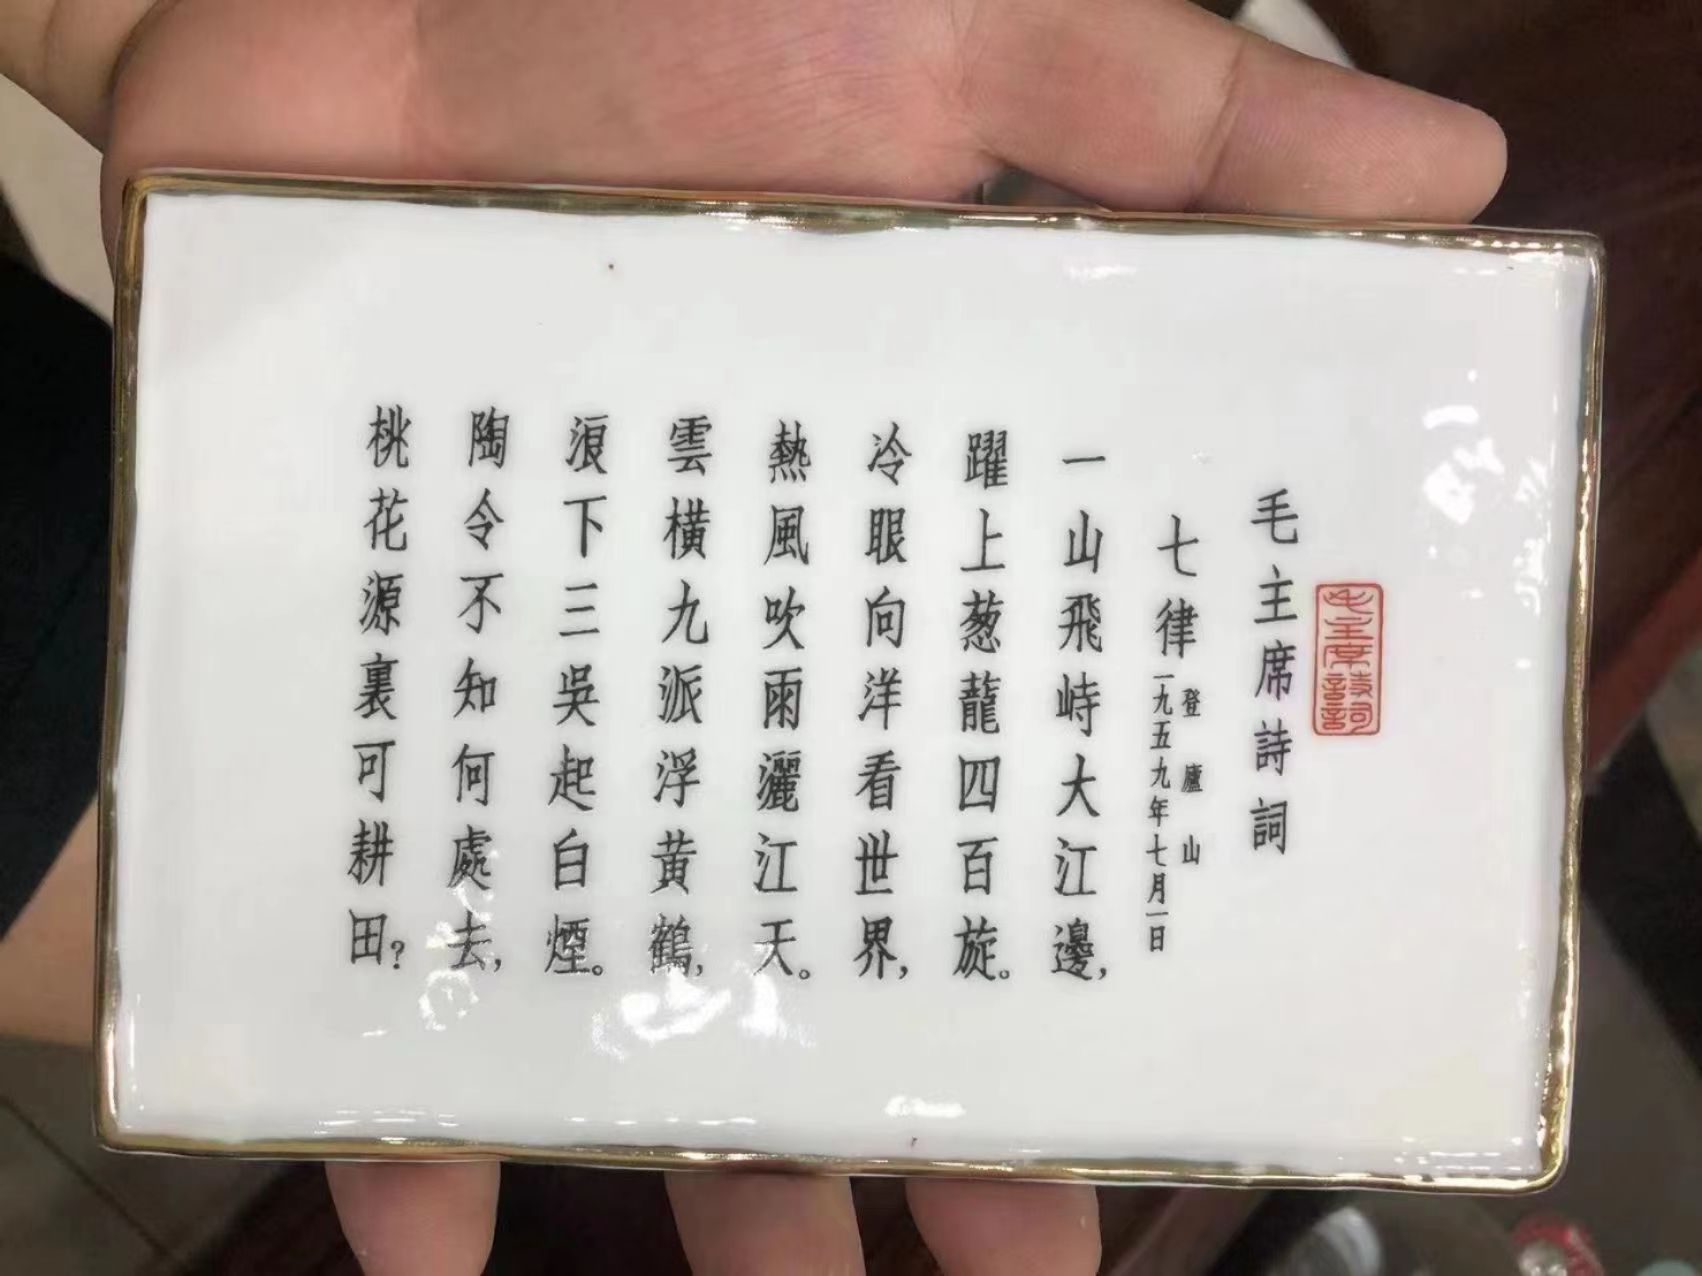 毛主席詩詞
毛主席詩詞
七律
登廬山
一九五九年七月一日
一山飛峙大江邊，
躍上葱龍四百旋。
冷眼向洋看世界，
熱風吹雨灑江天。
雲橫九派浮黃鶴，
浪下三吳起白煙。
陶令不知何處去，
桃花源裏可耕田？